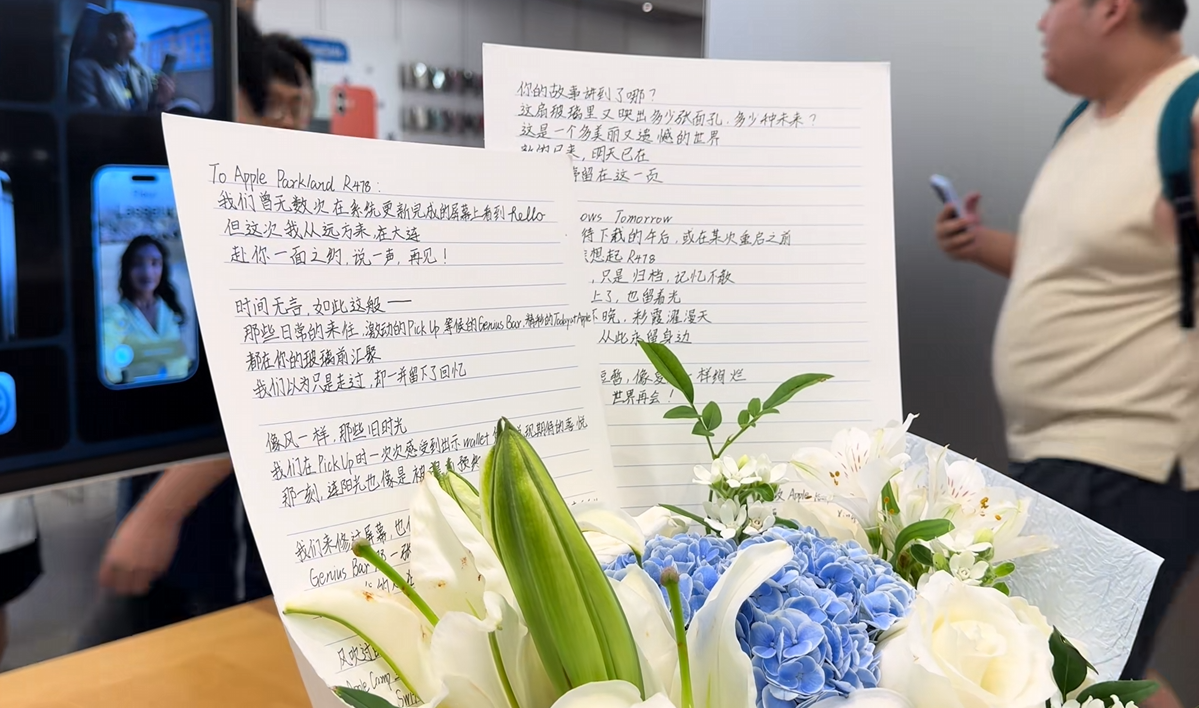 To Apple Parkland R478:
我们曾无数次在系统更新完成的屏幕上看到 hello
但这次我从远方来,在大连
赴你一面之约,说一声,再见!
时间无言,如此这般——
那些日常的来往,激动的Pick Up 等候的Genius Bar,精彩的Today at Apple
都在你的玻璃前汇聚
我们以为只是走过,却一并留下了回忆
像风一样,那些旧时光
我们在Pick Up时一次次感受到出示wallet 现期待的喜悦
那一刻,连阳光也像是被
我们来修过屏幕,也
Genius Bar
风吹过
Apple Camp
你的故事讲到了哪?
这扇玻璃里又映出多少张面孔,多少种未来?
这是一个多美丽又遗憾的世界
明天已在
停留在这一页
ows Tomorrow
待下载的午后,或在某次重启之前
想起 R478
,只是归档,记忆不散
上了,也留着光
下晚,彩霞濯漫天
从此永留身边
一样绚烂
世界再会!